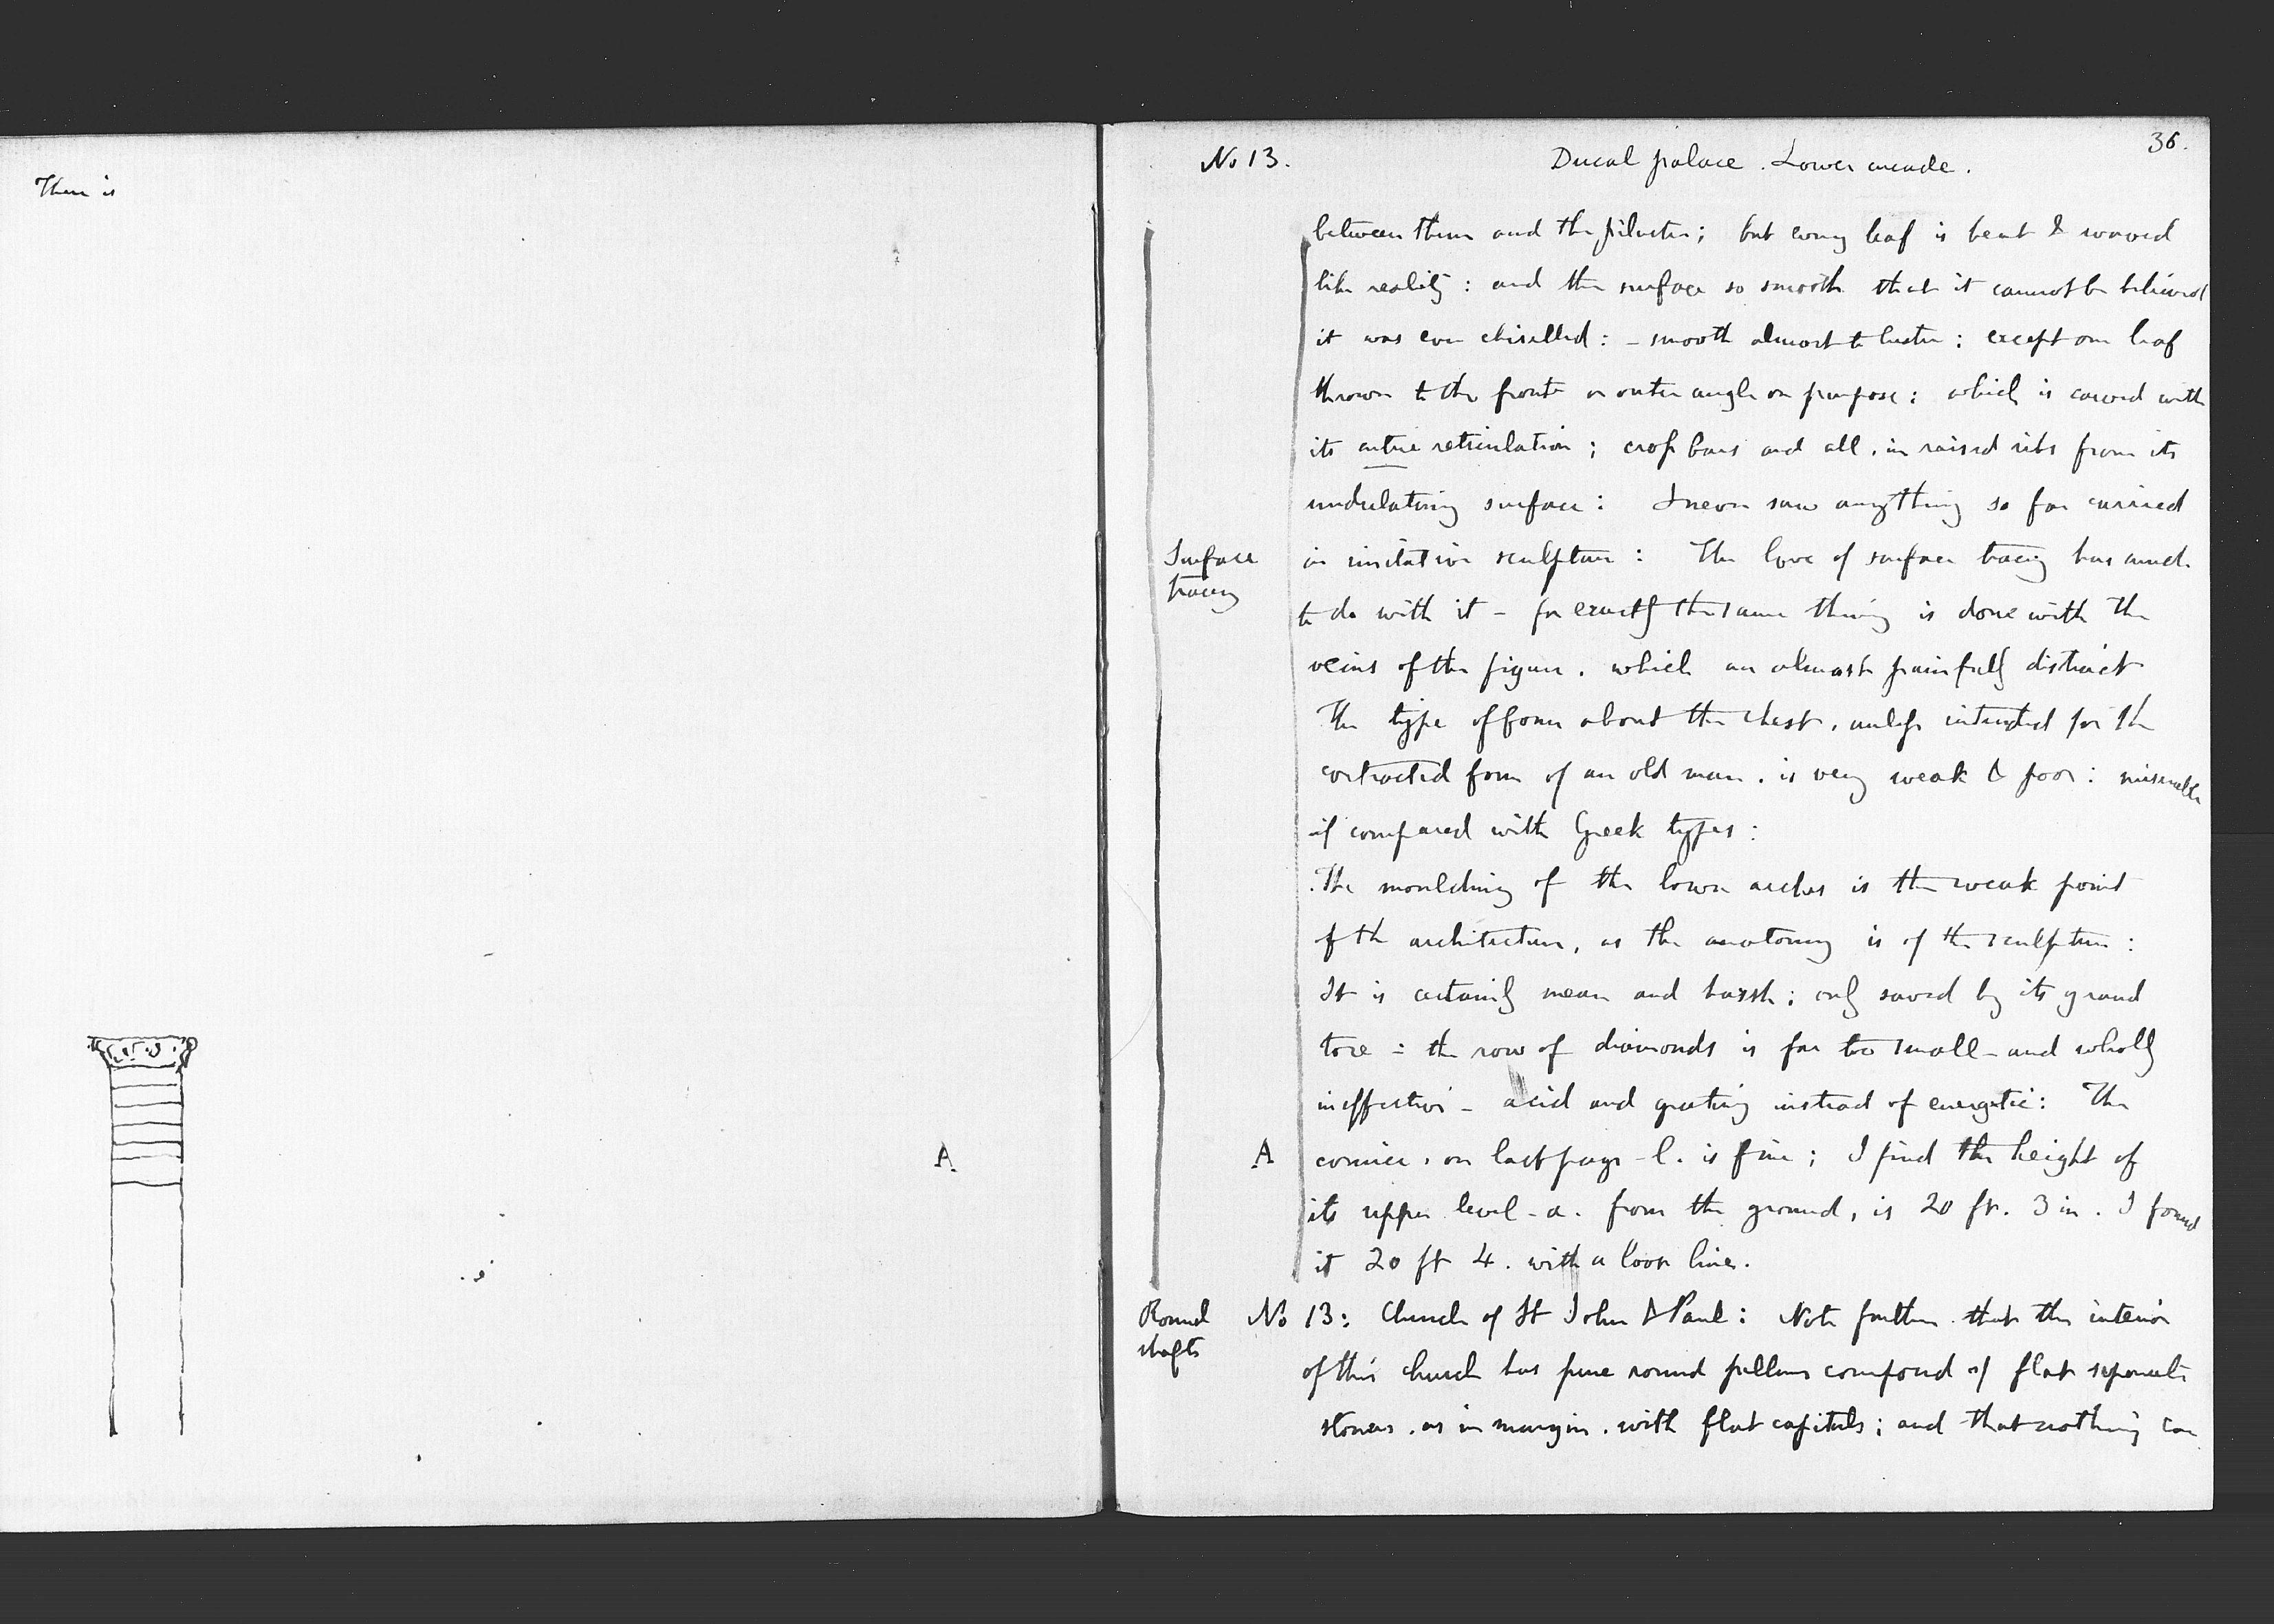 There is
A
No 13.
Ducal palace. Lower arcade.
36.
between them and the pilaster; but every leaf is bent & waved
like reality: and the surface so smooth that it cannot be believed
it was ever chiselled: - smooth almost to lustre: except one leaf
thrown to the front or outer angle on purpose: which is carved with
its entire reticulation; cross bars and all, in raised ribs from its
undulating surface: I never saw anything so far carried
Surface
tracery
in imitative sculpture: The love of surface tracery has much
to do with it - for exactly the same thing is done with the
veins of the figure. which are almost painfully distinct
The type of form about the chest, unless intended for the
contracted form of an old man. is very weak & poor: miserable
if compared with Greek types:
The moulding of the lower arches is the weak point
of the architecture, as the anatomy is of the sculpture:
It is certainly mean and harsh; only saved by its grand
tore: the row of diamonds is far too small - and wholly
ineffective - acid and grating instead of energetic: The
A
cornice. on last page - l. is fine; I find the height of
its upper level - a. from the ground, is 20 ft. 3 in. I found
it 20 ft 4. with a loose line.
Round
shafts
No 13: Church of St John & Paul: Note further that the interior
of this church has pure round pillars composed of flat separate
stones. as in margin. with flat capitals; and that nothing can